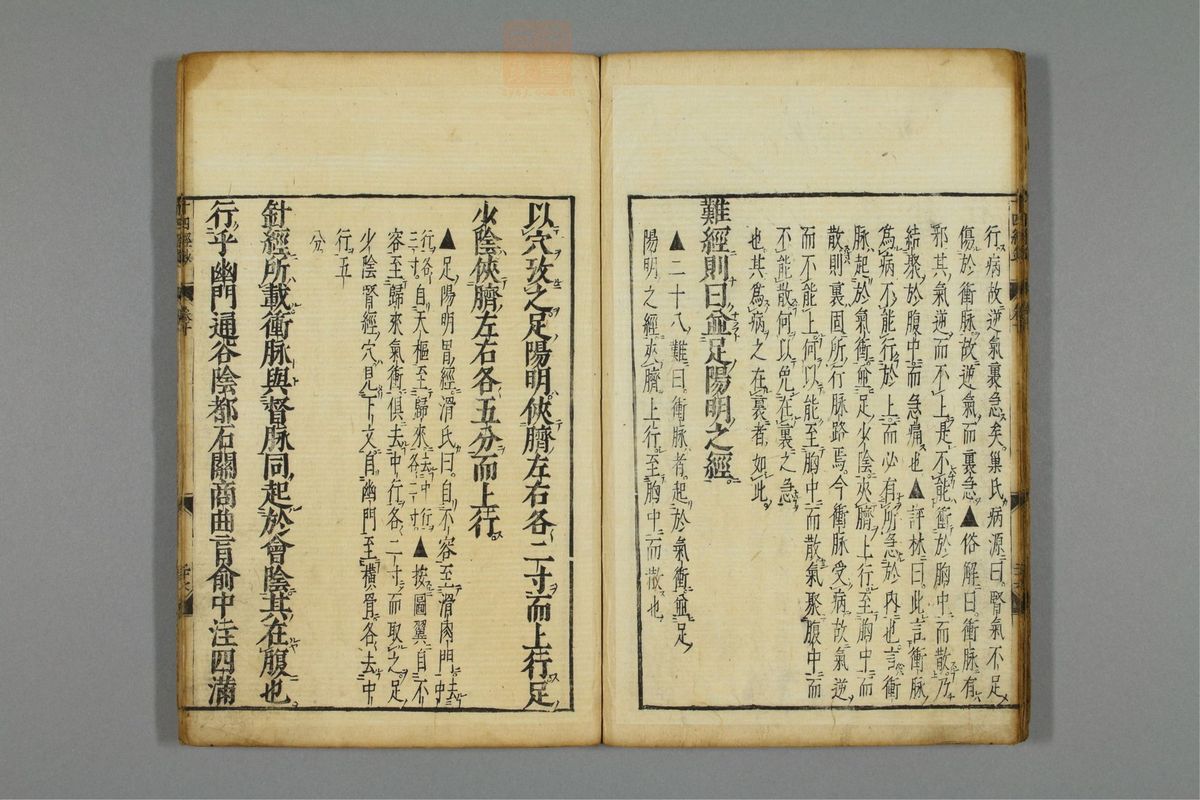 行病故逆氣裏急矣巢氏病源曰腎氣不足
傷於衝脉故逆氣而裏急▲俗解曰衝脉有
邪其氣逆而不上是不能衝於胸中而散乃
結聚於腹中而急痛也▲評林曰此言衝脉
爲病不能行於上而必有所急於内也言衝
脉起於氣衝並足少陰夾臍上行至胸中而
散則裏固所行脉路焉今衝脉受病故氣逆
而不能上何以能至胸中而散氣聚腹中而
不能散何以免在裏之急
也其爲病之在裏者如此
難經則曰並足陽明之經
▲二十八難曰衝脉者起於氣衝並足
陽明之經夾臍上行至胸中而散也
以穴攷之足陽明俠臍左右各二寸而上行足
少陰俠臍左右各五分而上行
▲足陽明胃經滑氏曰自不容至滑肉門去中
行各
三寸自天樞至歸來去中行各二寸▲按圖翼自不
容至歸來氣衝俱去中行各二寸而取之足
少陰腎經穴見下文自幽門至横骨各去中
行五
分
針經所載衝脉與督脉同起於會陰其在腹也
行乎幽門通谷陰都石關商曲肓俞中注四滿